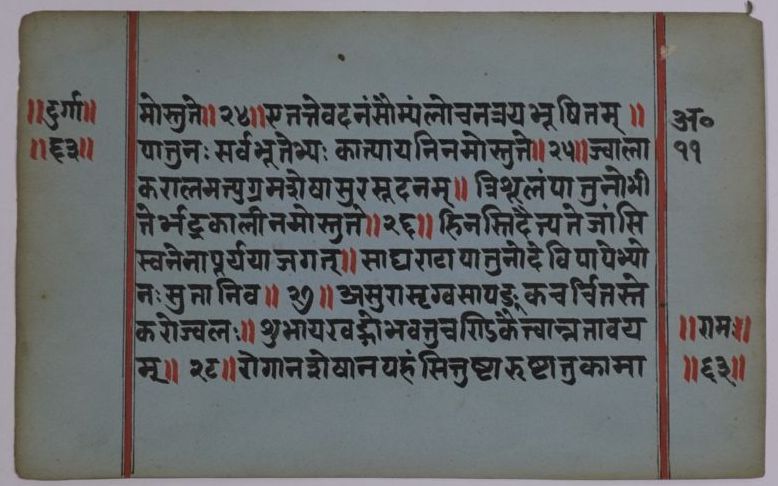 ॥दुर्गा॥
॥६३॥
मोस्तुते॥२४॥एतत्तेवदनंसौम्यंलोचनत्रयभूषितम्॥
पातुनःसर्वभूतेभ्यःकात्यायनिनमोस्तुते॥२५॥ज्वाला
करालमत्युग्रमशेषासुरसूदनम्॥त्रिशूलंपातुनोभी
तेर्भद्रकालीनमोस्तुते॥२६॥हिनस्तिदैत्यतेजांसि
स्वनेनापूर्ययाजगत्॥साघण्टापातुनोदेविपापेभ्यो
नःसुतानिव॥२७॥असुरासृग्वसापङ्कचर्चितस्ते
करोज्वलः॥शुभायखड्गोभवतुचण्डिकेत्वान्नतावय
म्॥२८॥रोगानशेषानपहंसितुष्टारुष्टातुकामा
अ॰
११
॥रामः॥
॥६३॥